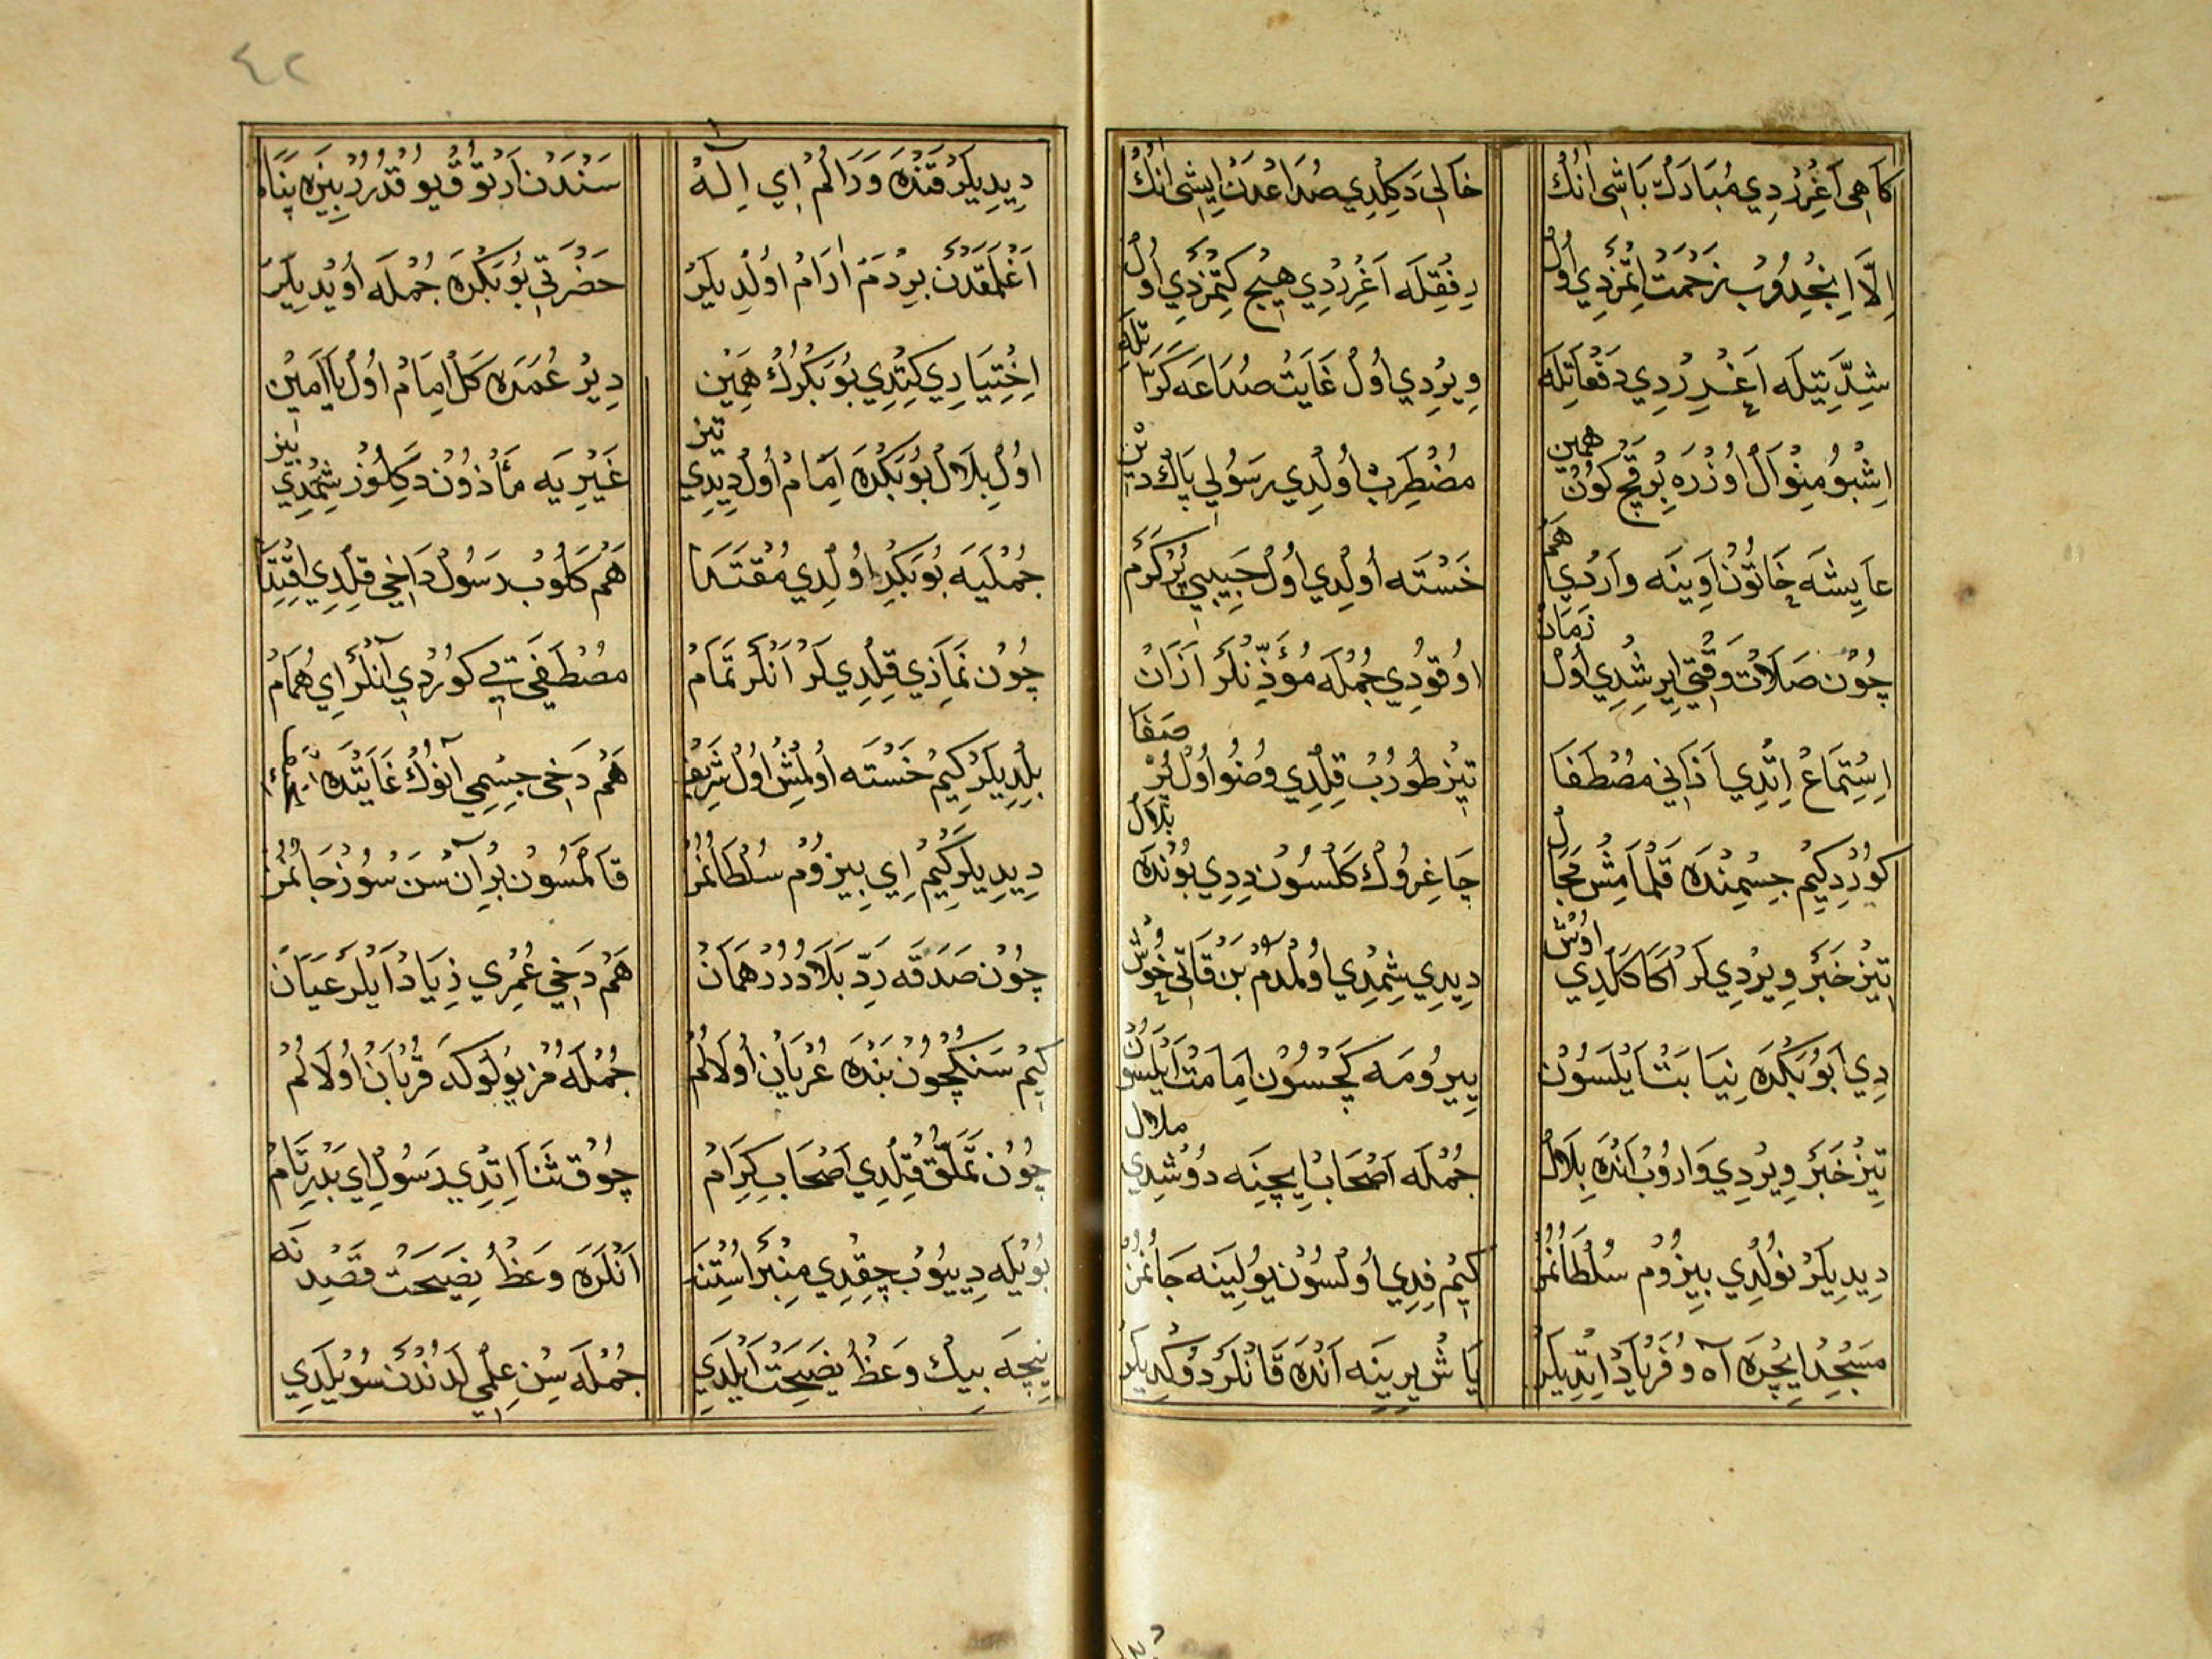 كاهى اغردي مبارك باشى انك خالي دكلدي صداعدن ايشى انك
الا انجدوب زحمت اتمزدي اول رفقله اغرردي هيچ كتمزدي اول
شدتيله اغرردي دفعاتله ويردي اول غايت صداعه كراتله
اشبو منوال اوزره برقچ كون همين مضطرب اولدي رسول پاك دين
عايشه خاتون اوينه واردي هم خسته اولدي اول حبيب پركرم
چون صلات وقتى ايرشدي اول زمان اوقودي جمله مؤذنلر اذان
استماع اتدي اذاني مصطفا تيز طورب قلدي وضو اول پر صفا
كوردكيم جسمنده قلمامش مجال چاغروك كلسون ددي بونده بلال
تيز خبر ويرديلر اكا كلدي اوش ديدي شمدي اولدم بن قاتى خوش
دي ابوبكره نيابت ايلسون ييرومه كچسون امامت ايلسون
تيز خبر ويردي واروب انده بلال جمله اصحاب ايچنه دوشدي ملال
ديديلر نولدي بيزوم سلطانمز كيم فدي اولسون يولينه جانمز
مسجد ايچره آه و فرياد اتديلر ياش يرينه انده قانلر دوكديلر
٤٢
ديديلر قنده ورالم اي اله سندن ارتوق قيو قدرر بيزه پناه
اغلمقدن بردم ارام اولديلر حضرتي بوبكره جمله اويديلر
اختياري كتدي بوبكرك همين دير عمره كل امام اول يا امين
اول بلال بوبكره امام اول ديدي تيز غيريه مأذون دكلوز شمدي بيز
جمليه بوبكر اولدي مقتدا هم كلوب رسول داخي قلدي اقتدا
چون نمازي قلديلر انلر تمام مصطفى يي كوردي انلر اي همام
بلديلر كيم خسته اولمش اول شريف هم دخى جسمى آنوك غايتده
ديديلر كيم اي بيزوم سلطانمز قالمسون بر ان سن سوز جانمز
چون صدقه رد بلادور همان هم دخي عمري زياد ايلر عيان
كيم سنكچون بنده عريان اولالم جملهمز يولوكه قربان اولالم
چون تملق قلدي اصحاب كرام چوق ثنا اتدي رسول اي بدر تام
بويله دييوب چقدي منبر استنه انلره وعظ نصيحت قصدنه
نيچه بيك وعظ نصيحت ايلدي جمله سن علم لدندن سويلدي